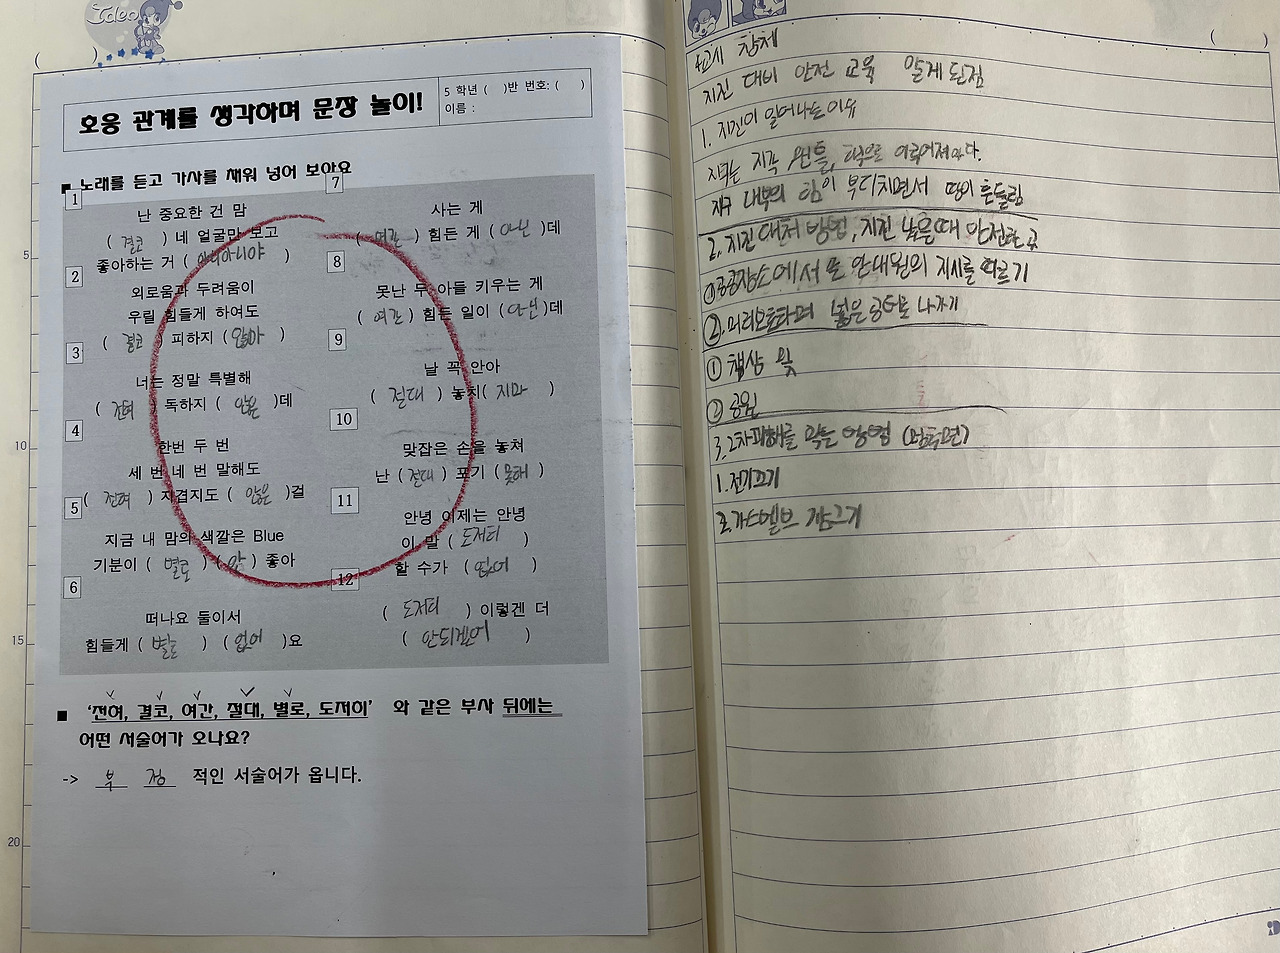 Ideo
( )
호응 관계를 생각하며 문장 놀이!
5 학년 ( )반 번호: ( )
이름 :
■ 노래를 듣고 가사를 채워 넣어 보아요
1
난 중요한 건 맘
( 결코 ) 네 얼굴만 보고
좋아하는 거 ( 아니야 )
2
외로움과 두려움이
우릴 힘들게 하여도
( 결코 ) 피하지 ( 않아 )
3
너는 정말 특별해
( 전혀 ) 독하지 ( 않은 )데
4
한번 두 번
세 번 네 번 말해도
( 전혀 ) 지겹지도 ( 않은 )걸
5
지금 내 맘의 색깔은 Blue
기분이 ( 별로 ) ( 안 ) 좋아
6
떠나요 둘이서
힘들게 ( 별로 ) ( 없어 )요
7
사는 게
( 여간 ) 힘든 게 ( 아닌 )데
8
못난 두 아들 키우는 게
( 여간 ) 힘든 일이 ( 아닌 )데
9
날 꼭 안아
( 절대 ) 놓치( 지마 )
10
맞잡은 손을 놓쳐
난 ( 절대 ) 포기 ( 못해 )
11
안녕 이제는 안녕
이 말 ( 도저히 )
할 수가 ( 없어 )
12
( 도저히 ) 이렇겐 더
( 안되겠어 )
■ ‘전혀, 결코, 여간, 절대, 별로, 도저히’ 와 같은 부사 뒤에는
어떤 서술어가 오나요?
-> 부 정 적인 서술어가 옵니다.
5
10
15
20
( )
4교시 창체
지진 대비 안전 교육 알게된점
1. 지진이 일어나는 이유
지구는 지각 맨틀, 핵으로 이루어져있다.
지구 내부의 힘이 부디치면서 땅이 흔들림
2. 지진 대처 방법, 지진 났을때 안전한 곳
①공공장소에서 는 안내원의 지시를 따르기
②. 머리보호하며 넓은 공터로 나가기
① 책상 밑
② 공원
3. 2차피해를 막는 방법
1. 전기끄기
2. 가스벨브 잠그기